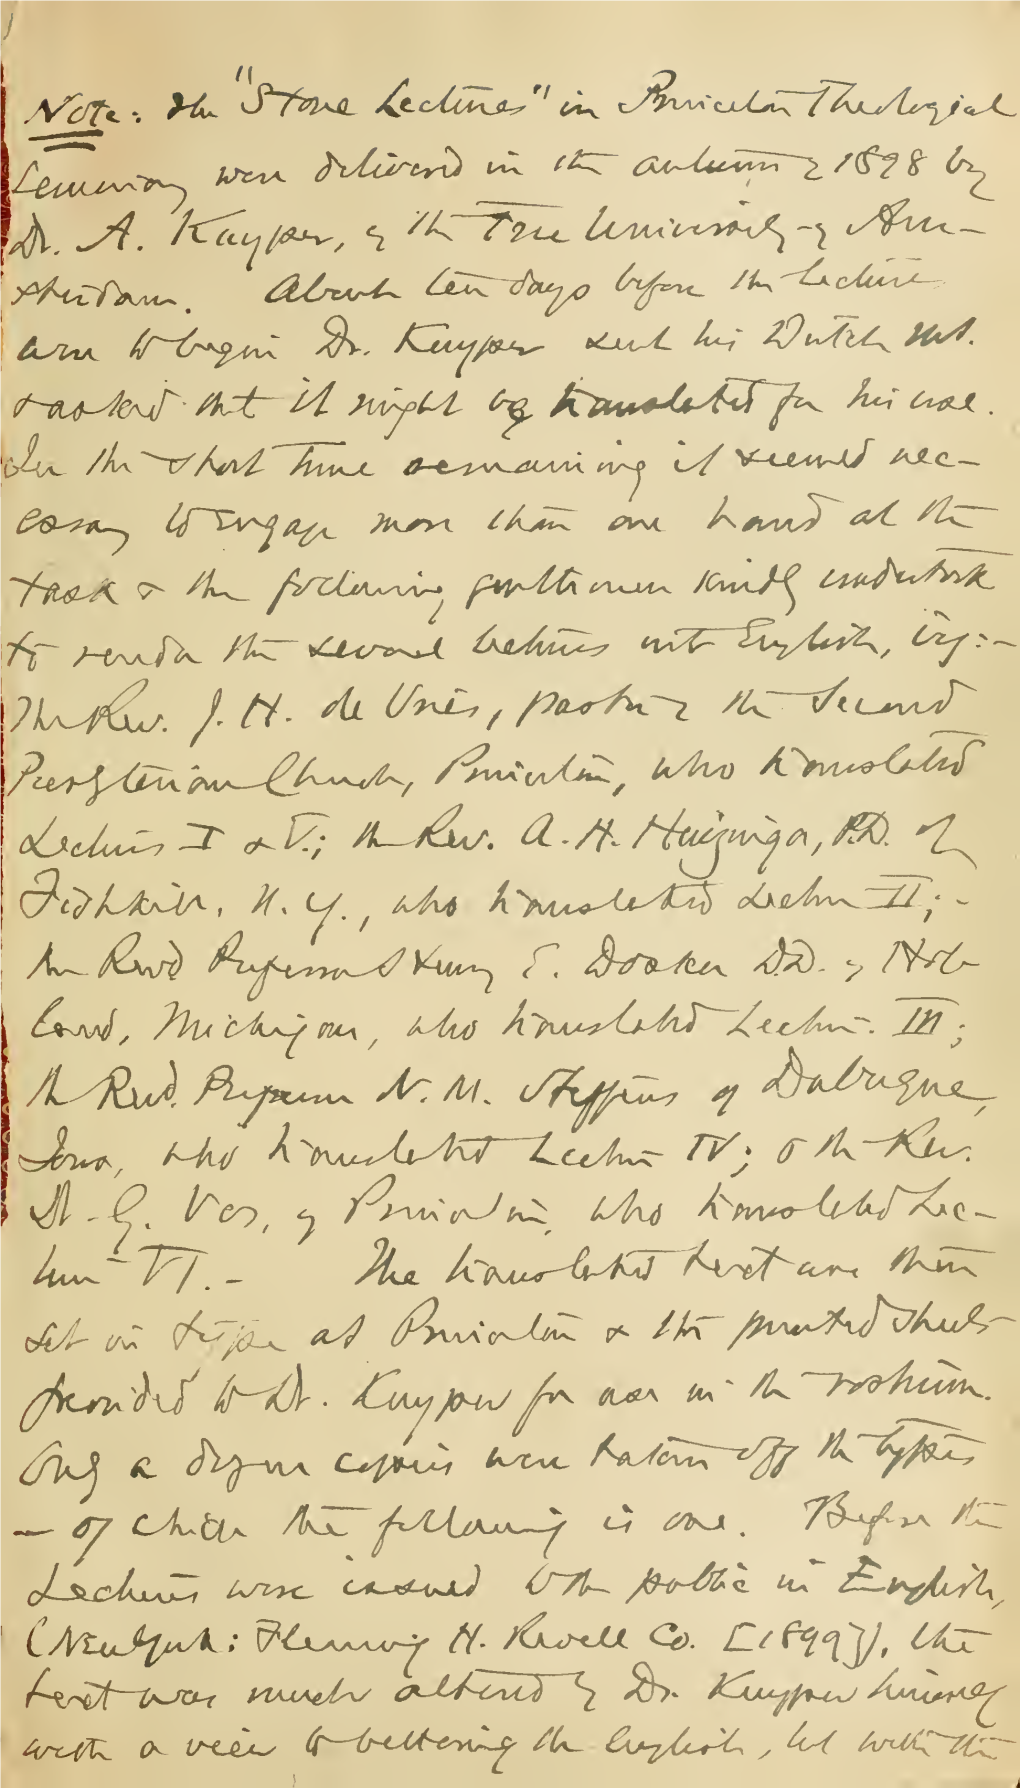 Note: The "Stone Lectures" in Princeton Theological
Seminary were delivered in the autumn of 1898 by
Dr. A. Kuyper, of the Free University of Am-
sterdam. About ten days before the lectures
were to begin Dr. Kuyper sent his Dutch MS.
& asked that it might be translated for his use.
In the short time remaining it seemed nec-
essary to engage more than one hand at the
task & the following gentlemen kindly undertook
to render the several lectures into English, viz:-
The Rev. J. H. de Vries, pastor of the Second
Presbyterian Church, Princeton, who translated
Lectures I & V.; the Rev. A. H. Huizinga, P.D. of
Fishkill, N. Y., who translated Lecture II;-
the Revd Professor Henry E. Dosker D.D. of Hol-
land, Michigan, who translated Lecture III;
the Revd. Professor N. M. Steffens of Dubuque,
Iowa, who translated Lecture IV; & the Rev.
Dr. G. Vos, of Princeton, who translated Lec-
ture VI.- The translated text was then
set in type at Princeton & the printed sheets
provided to Dr. Kuyper for use in the rostrum.
Only a dozen copies were taken off the types
— of which the following is one. Before the
Lectures were issued to the public in English,
(New York: Fleming H. Revell Co. [1899]), the
text was much altered by Dr. Kuyper himself
with a view to bettering the English, but with the